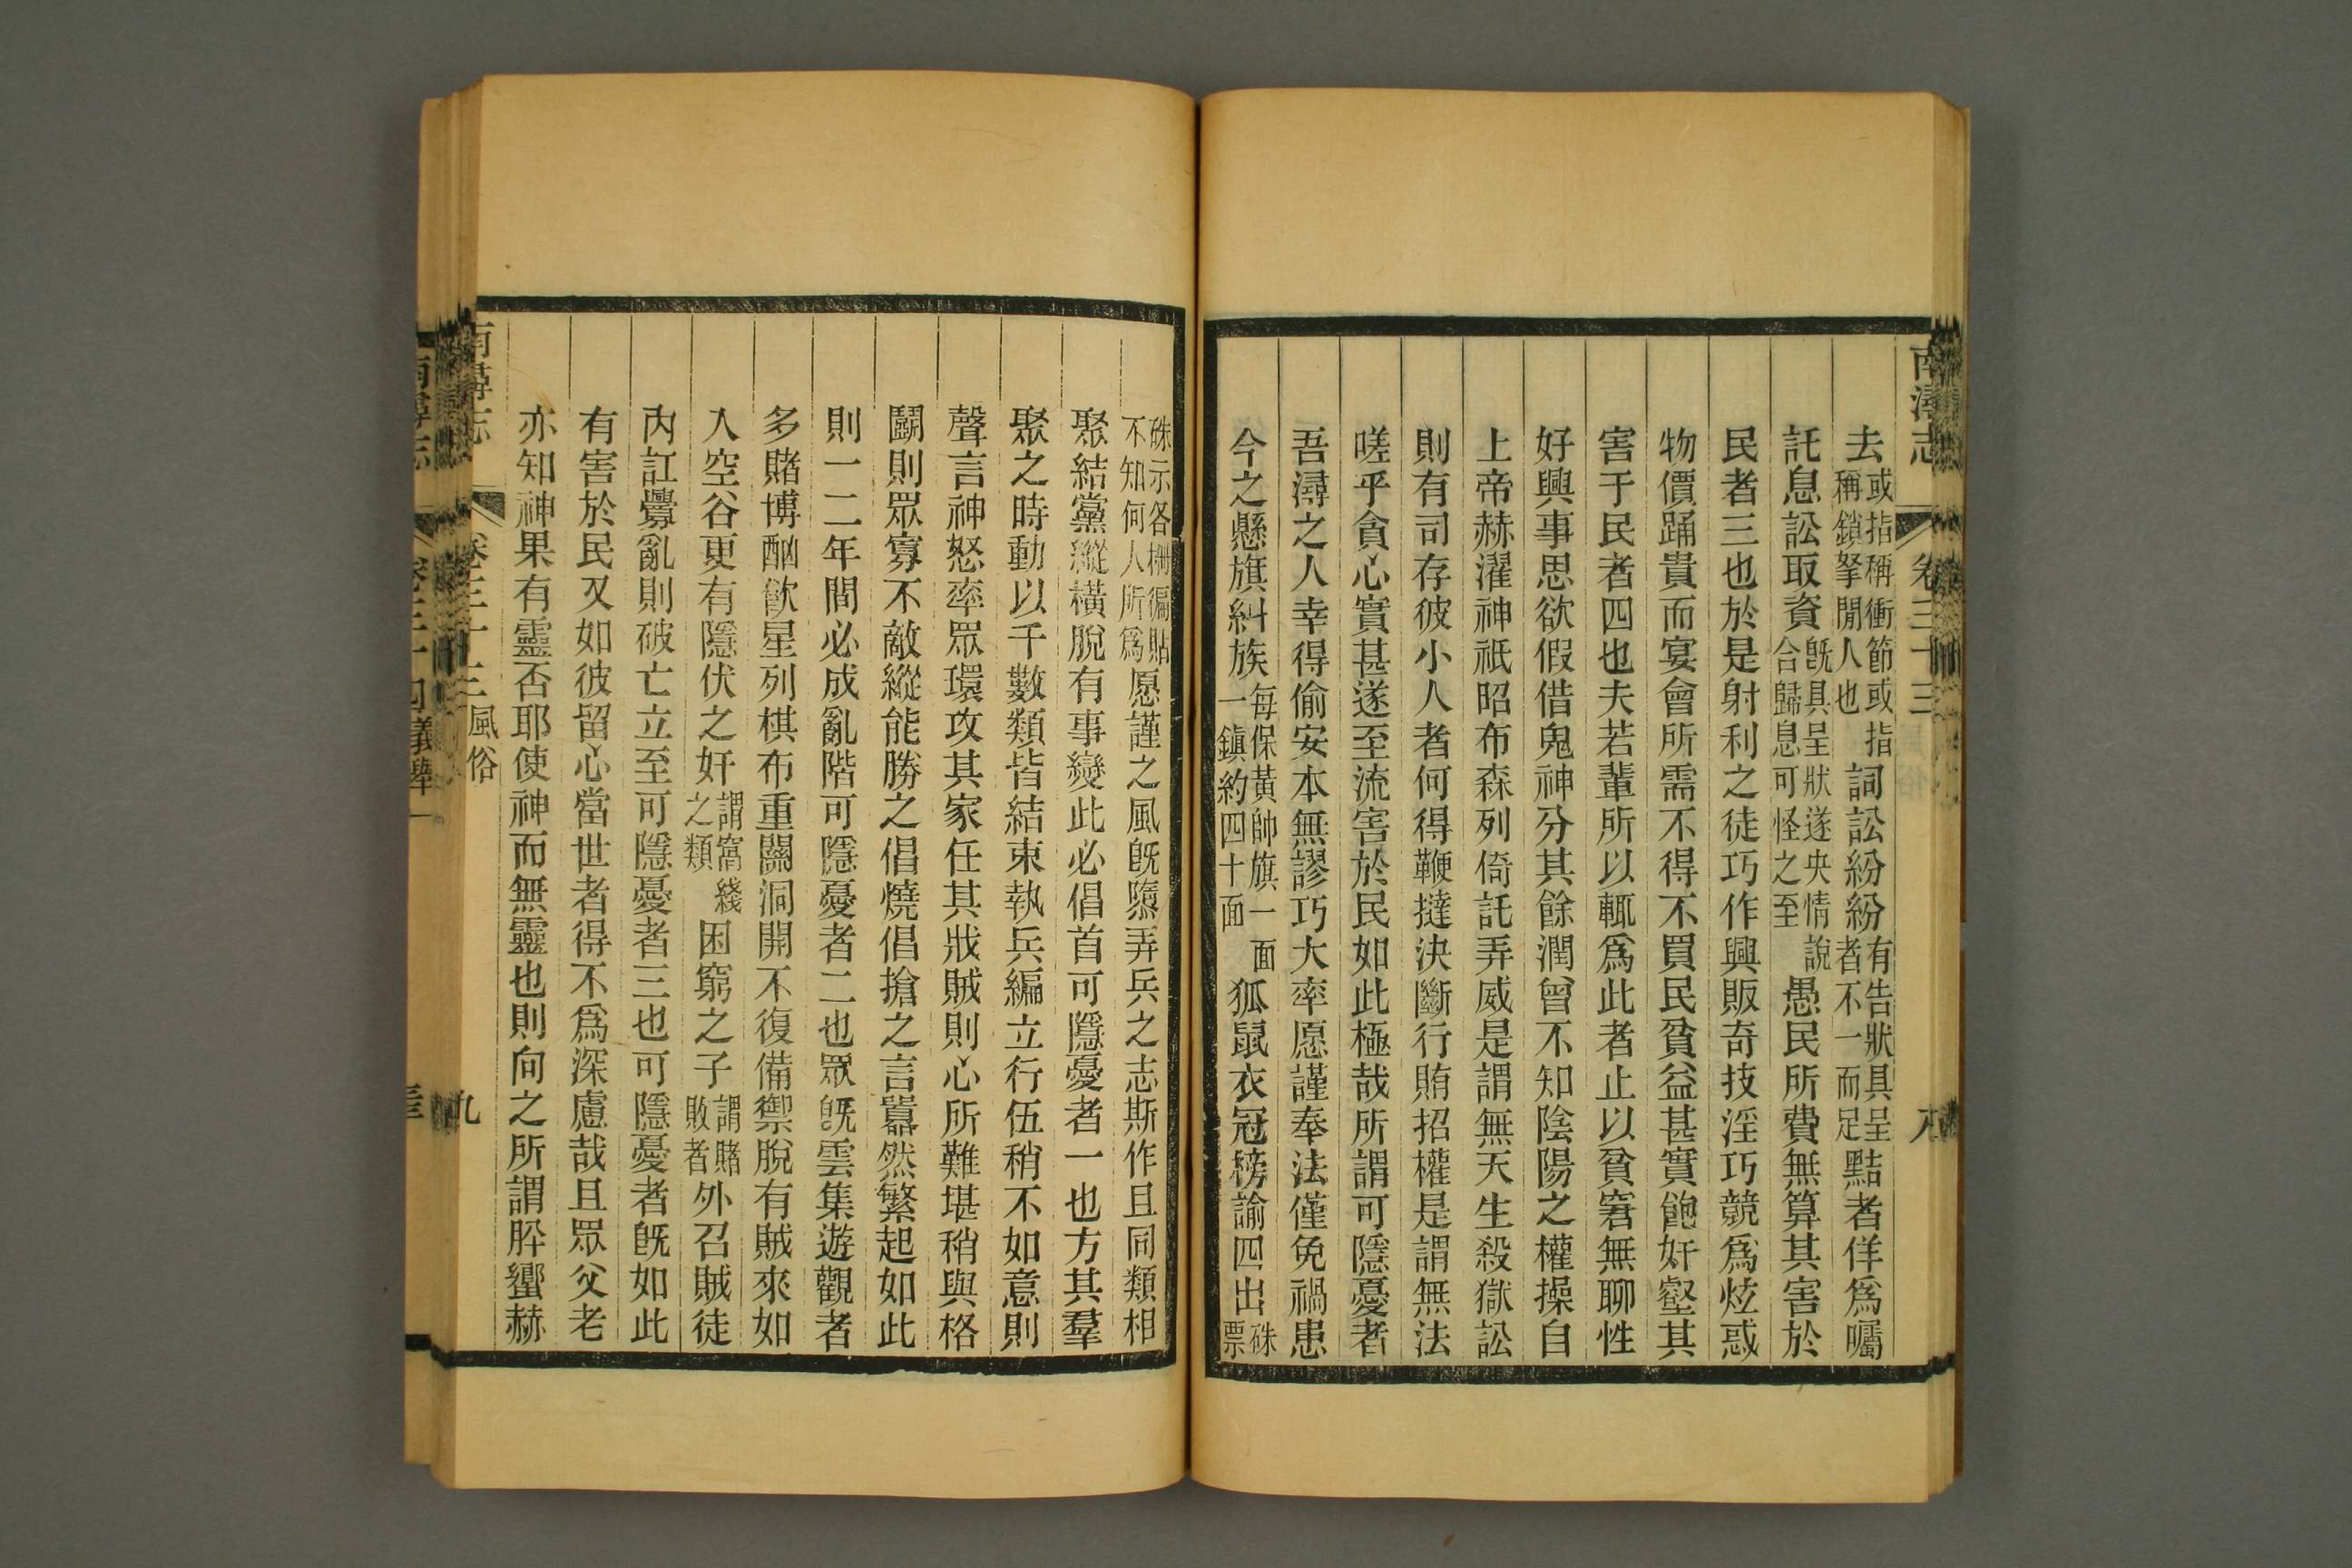 南潯志
卷三十三
八
去或指稱衝節或指稱鎖拏閒人也詞訟紛紛有告狀具呈者不一而足黠者佯爲囑
託息訟取資旣具呈狀遂央情說合歸息可怪之至愚民所費無算其害於
民者三也於是射利之徒巧作興販奇技淫巧競爲炫惑
物價踊貴而宴會所需不得不買民貧益甚實飽奸壑其
害于民者四也夫若輩所以輒爲此者止以貧窘無聊性
好興事思欲假借鬼神分其餘潤曾不知陰陽之權操自
上帝赫濯神祇昭布森列倚託弄威是謂無天生殺獄訟
則有司存彼小人者何得鞭撻決斷行賄招權是謂無法
嗟乎貪心實甚遂至流害於民如此極哉所謂可隱憂者
吾潯之人幸得偷安本無謬巧大率愿謹奉法僅免禍患
今之懸旗糾族每保黃帥旗一面一鎮約四十面狐鼠衣冠榜諭四出硃票
硃示各柵徧貼不知何人所爲愿謹之風旣隳弄兵之志斯作且同類相
聚結黨縱橫脫有事變此必倡首可隱憂者一也方其羣
聚之時動以千數類皆結束執兵編立行伍稍不如意則
聲言神怒率眾環攻其家任其戕賊則心所難堪稍與格
鬬則眾寡不敵縱能勝之倡燒倡搶之言囂然繁起如此
則一二年間必成亂階可隱憂者二也眾旣雲集遊觀者
多賭博酗飲星列棋布重關洞開不復備禦脫有賊來如
入空谷更有隱伏之奸謂窩綫之類困窮之子謂賭敗者外召賊徒
內訌釁亂則破亡立至可隱憂者三也可隱憂者旣如此
有害於民又如彼留心當世者得不爲深慮哉且眾父老
亦知神果有靈否耶使神而無靈也則向之所謂肸蠁赫
南潯志
卷三十三風俗
九
南潯志